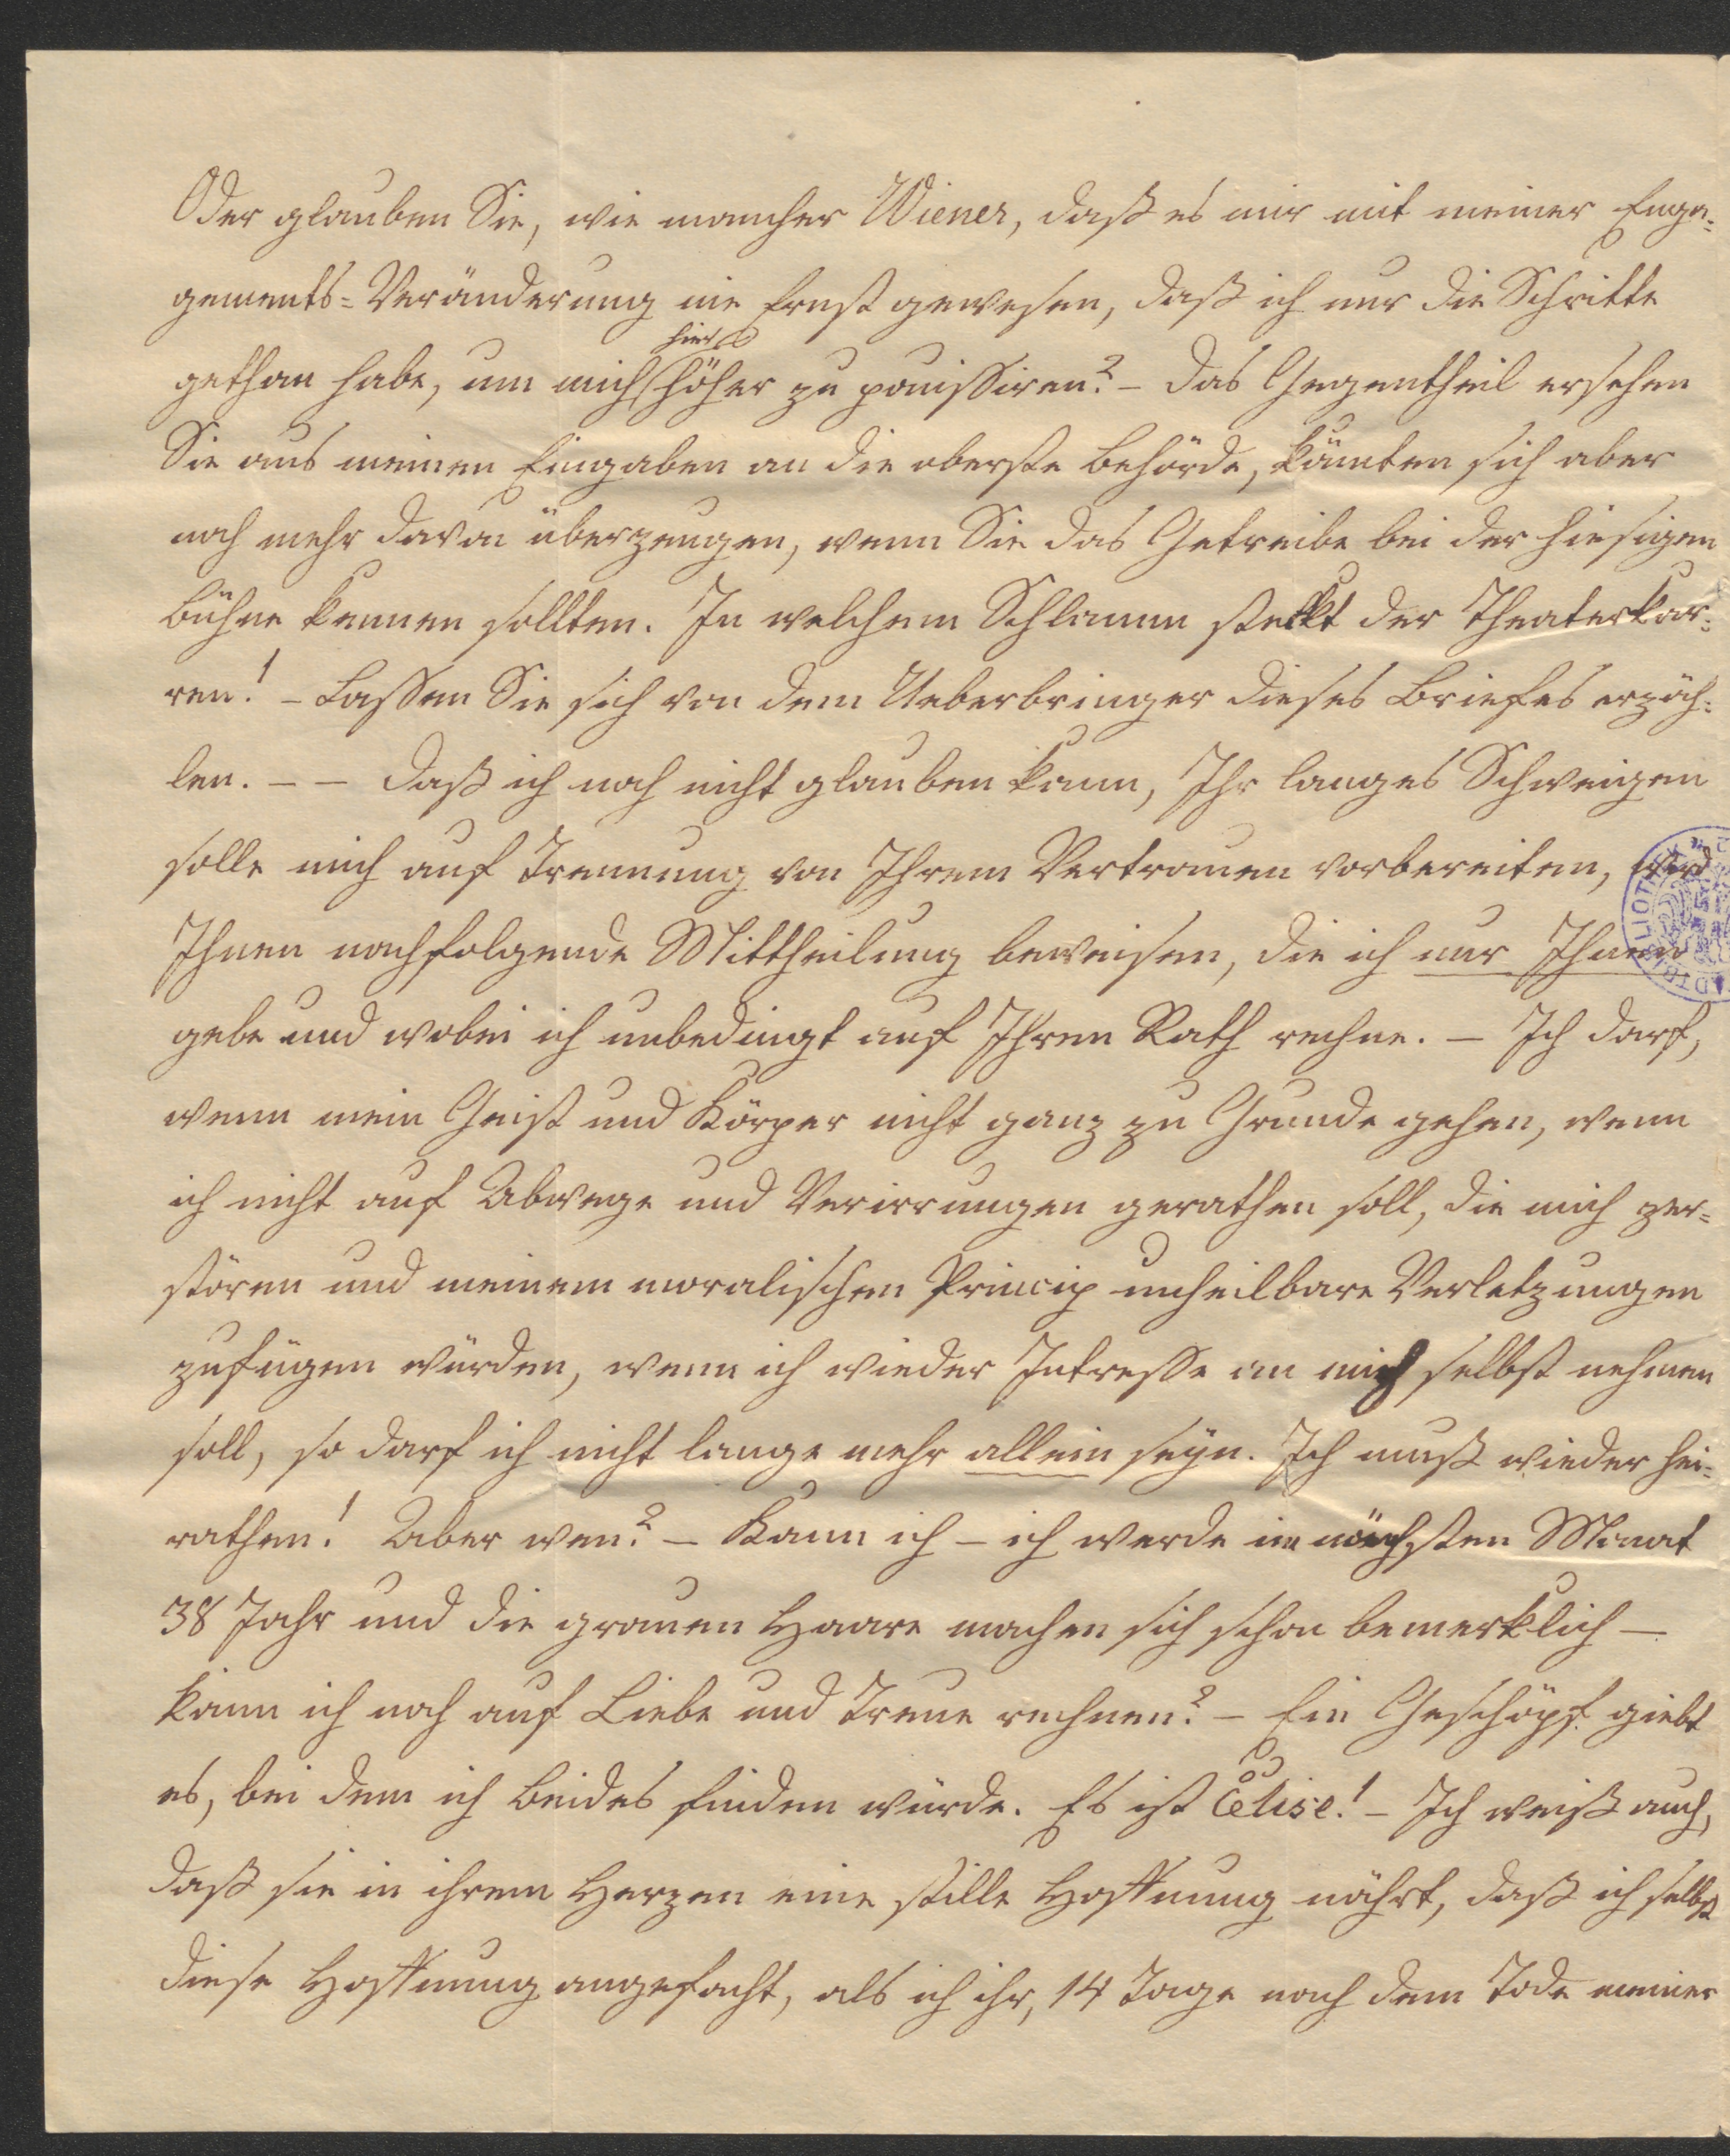 Oder glauben Sie, wie mancher Wiener, daß es mir mit meiner Enga-
gements-Veränderung nie Ernst gewesen, daß ich nur die Schritte
hier
gethan habe, um mich höher zu poussiren? – Das Gegentheil ersehen
Sie aus meinen Eingaben an die oberste Behörde, könnten sich aber
noch mehr davon überzeugen, wenn Sie das Getreibe bei der hiesigen
Bühne kennen sollten. In welchem Schlamm steckt der Theaterkar-
ren! – Lassen Sie sich von dem Ueberbringer dieses Briefes erzäh-
len. – – Daß ich noch nicht glauben kann, Ihr langes Schweigen
solle mich auf Trennung von Ihrem Vertrauen vorbereiten, wird
Ihnen nachfolgende Mittheilung beweisen, die ich nur Ihnen
gebe und wobei ich unbedingt auf Ihren Rath rechne. – Ich darf,
wenn mein Geist und Körper nicht ganz zu Grunde gehen, wenn
ich nicht auf Abwege und Verirrungen gerathen soll, die mich zer-
stören und meinem moralischen Princip unheilbare Verletzungen
zufügen würden, wenn ich wieder Intresse an mich selbst nehmen
soll, so darf ich nicht lange mehr allein seyn. Ich muß wieder hei-
rathen! Aber wen? – Kann ich – ich werde im nächsten Monat
38 Jahr und die grauen Haare machen sich schon bemerklich –
kann ich noch auf Liebe und Treue rechnen? – Ein Geschöpf giebt
es, bei dem ich Beides finden würde. Es ist Elise! – Ich weiß auch,
daß sie in ihrem Herzen eine stille Hoffnung nährt, daß ich selbst
diese Hoffnung angefacht, als ich ihr, 14 Tage nach dem Tode meiner